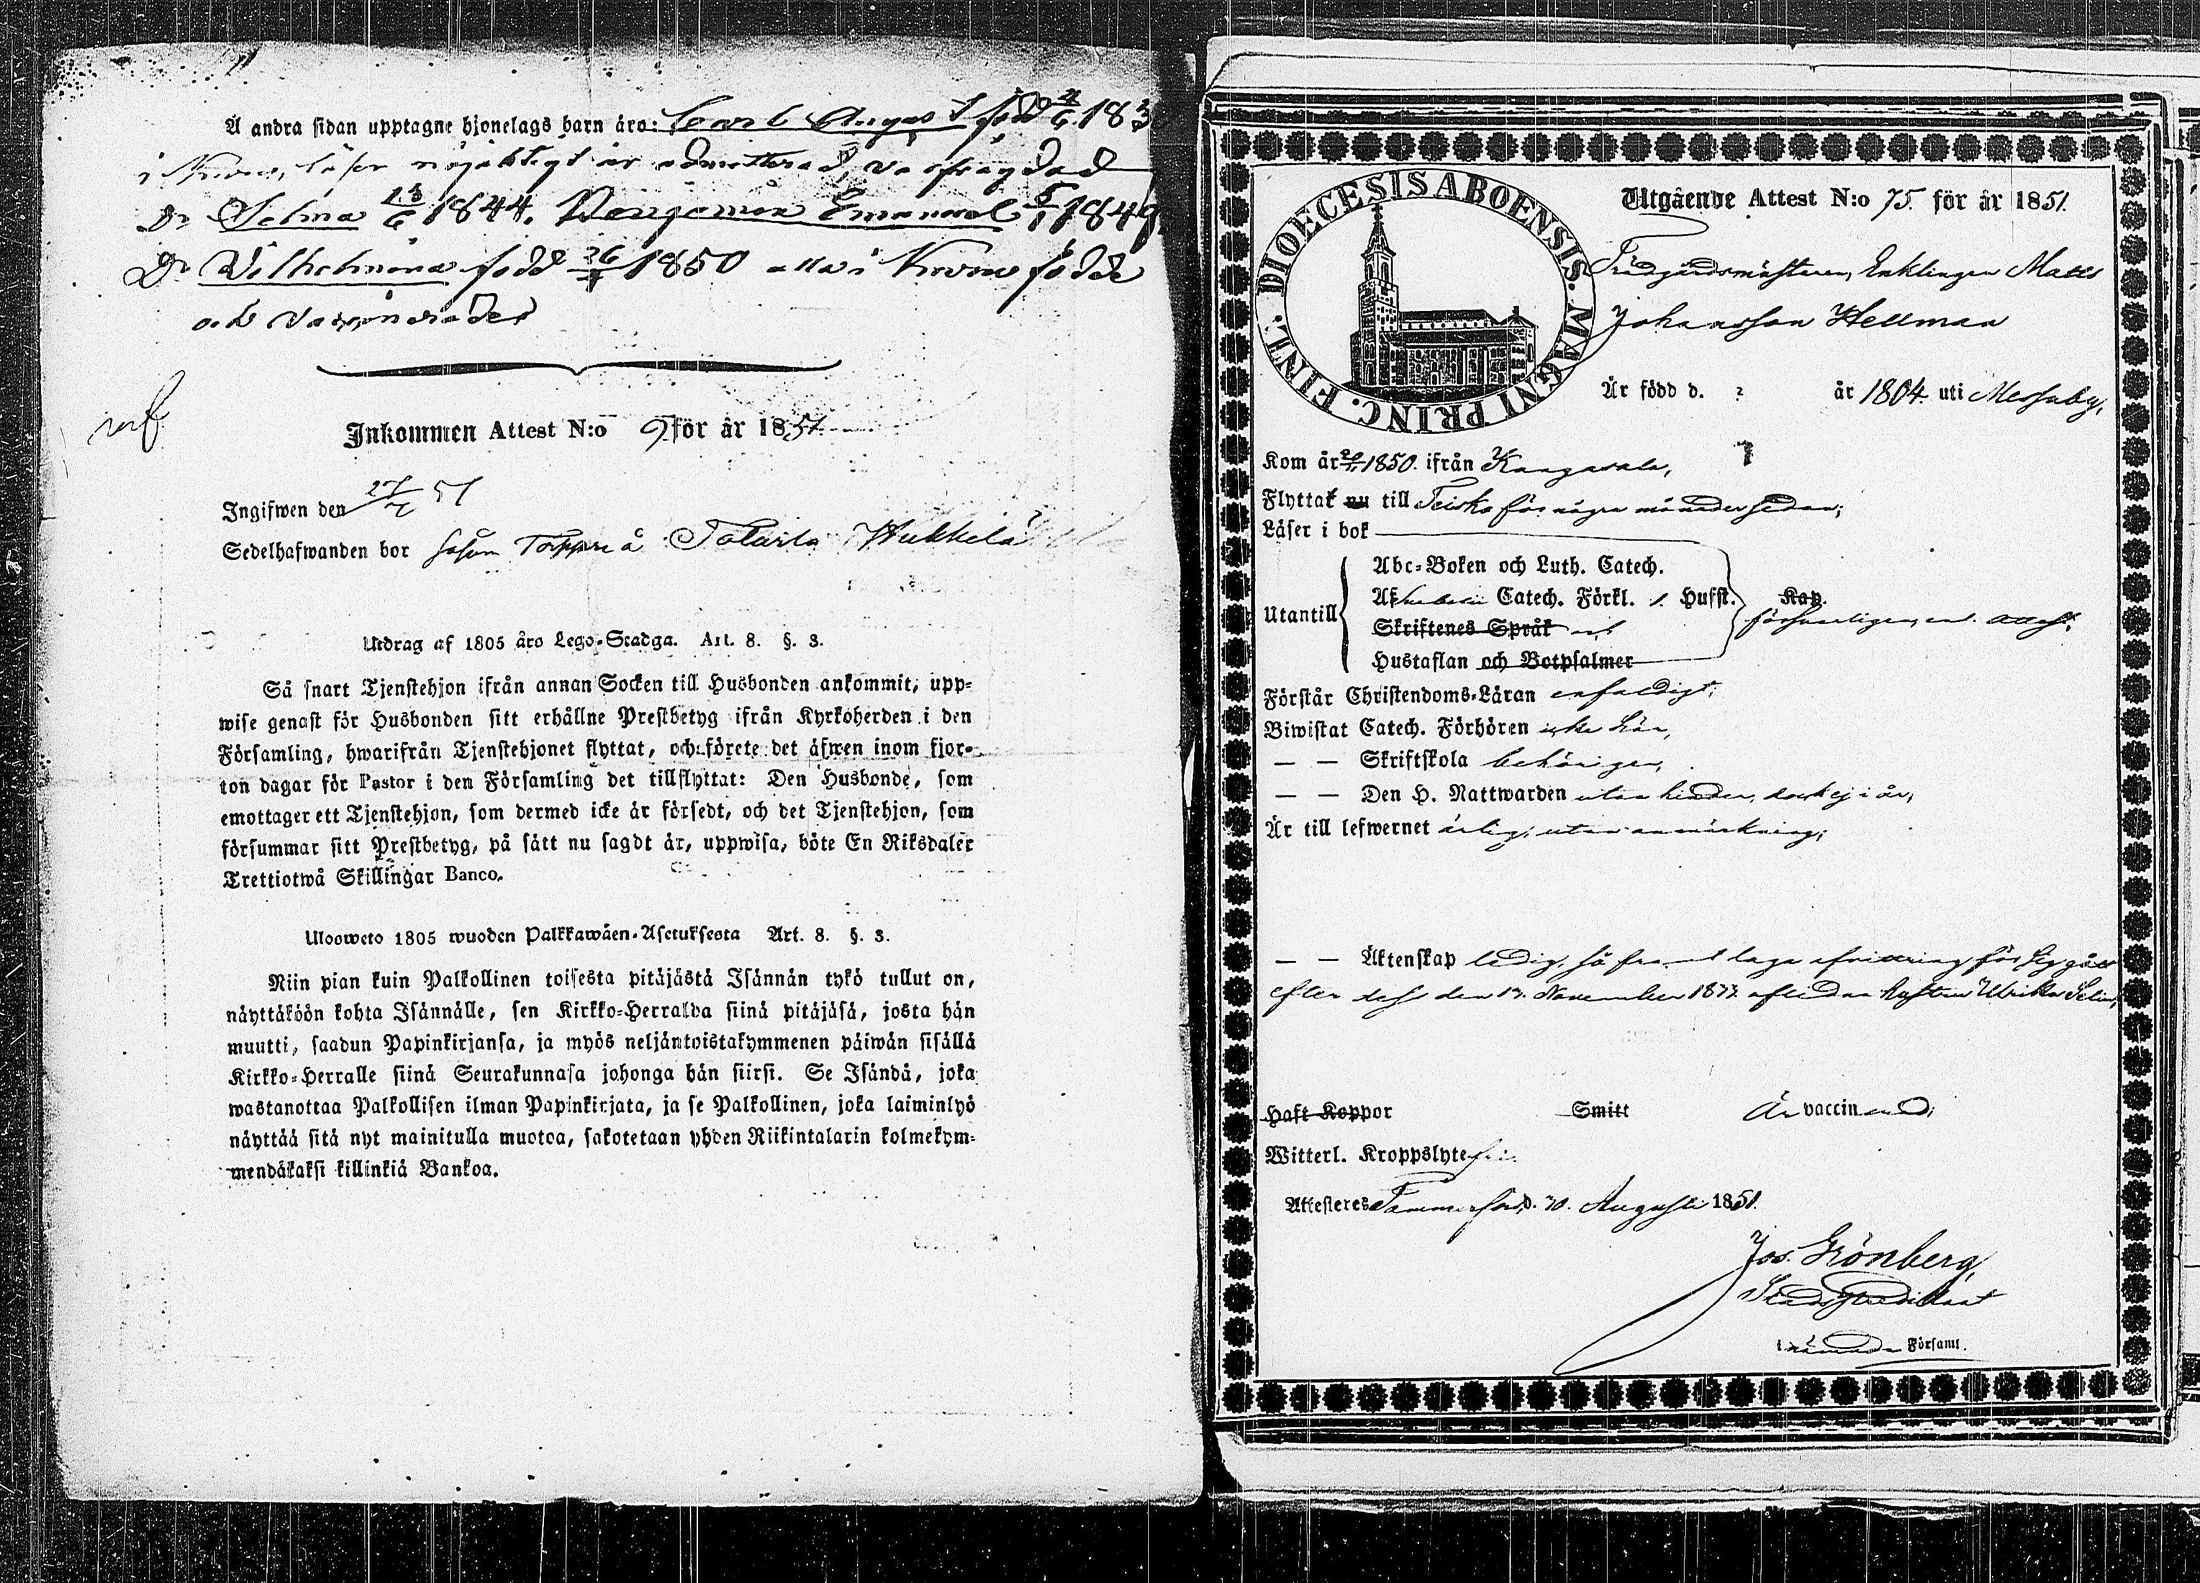 Å andra sidan upptagne hjonelags barn äro: Carl August född 18
i
Dr Selma 13/6 1844. Bengamin Emanuel 5/1 1849
Dr Vilhelmina född 26/ 1850 alla i födde
och vaccinerade
Inkommen Attest N:o 9 för år 1851
Ingifwen den 27/ 51
Sedelhafwanden bor såsom Torppare å
Utdrag af 1805 års Lego-Stadga. Art. 8. §. 3.
Så snart Tjenstehjon ifrån annan Socken till Husbonden ankommit, upp-
wise genast för Husbonden sitt erhållne Prestbetyg ifrån Kyrkoherden i den
Församling, hwarifrån Tjenstehjonet flyttat, och förete det äfwen inom fjor-
ton dagar för Pastor i den Församling det tillflyttat: Den Husbonde, som
emottager ett Tjenstehjon, som dermed icke är försedt, och det Tjenstehjon, som
försummar sitt Prestbetyg, på sätt nu sagdt är, uppwisa, böte En Riksdaler
Trettiotwå Skillingar Banco.
Ulosweto 1805 wuoden Palkkawäen-Asetuksesta Art. 8. §. 3.
Niin pian kuin Palkollinen toisesta pitäjästä Isännän tykö tullut on,
näyttäköön kohta Isännälle, sen Kirkko-Herralda siinä pitäjäsä, josta hän
muutti, saadun Papinkirjansa, ja myös neljäntoistakymmenen päiwän sisällä
Kirkko-Herralle siinä Seurakunnasa johonga hän siirsi. Se Isändä, joka
wastanottaa Palkollisen ilman Papinkirjata, ja se Palkollinen, joka laiminlyö
näyttää sitä nyt mainitulla muotoa, sakotetaan yhden Riikintalarin kolmekym-
mendäkaksi killinkiä Bankoa.
DIOECESIS ABOENSIS. MAGNI PRINC. FINL.
Utgående Attest N:o 75. för år 1851.
Trädgårdsmästaren, Enklingen Matts
Johansson Hellman
Är född d. ? år 1804. uti Messuby,
Kom år 1850. ifrån Kangasala,
Flyttat nu till Teisko för några månader sedan;
Läser i bok
Utantill
Abc-Boken och Luth. Catech.
Catech. Förkl. 1. Hufst. Kap.
Skriftenes Språk och
Hustaflan och Botpsalmer
försvarligen, enl. attest.
Förstår Christendoms-Läran enfaldigt;
Biwistat Catech. Förhören icke här,
— — Skriftskola behörigen,
— — Den H. Nattwarden utan hinder, dock ej i år,
Är till lefwernet ärlig, utan anmärkning;
— — Äktenskap ledig, så framt laga afvittring för sig gått
efter dess den November afledna hustru Ulrika
Haft Koppor Smitt Är vaccinerad;
Witterl. Kroppslyte fri.
Attesteres Tammerfors d. 30. Augusti 1851.
Jos. Grönberg,
Stadspredikant
i nämnda Församl.